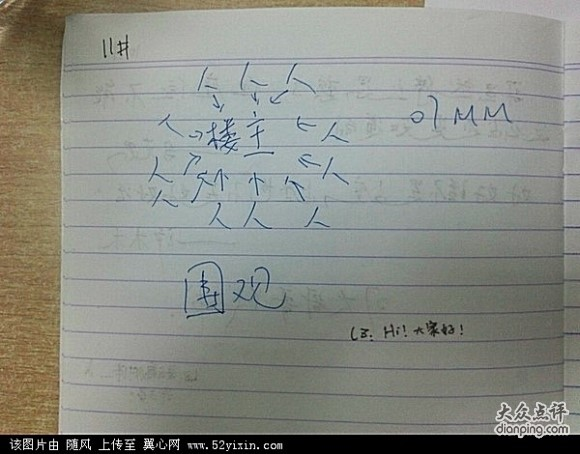 11#
人 人 人
07MM
人 楼主 人
人 人
人
人 人 人
围观
LZ: Hi! 大家好!
大众点评
dianping.com
该图片由 随风 上传至 翼心网 www.52yixin.com